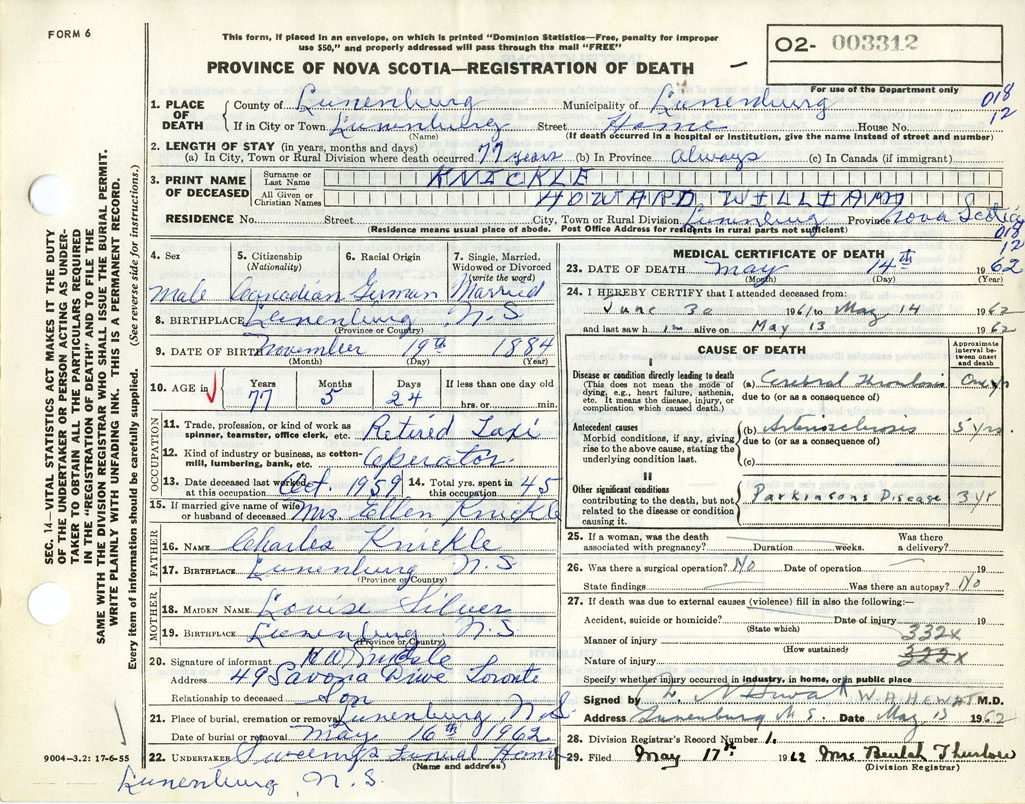 FORM 6
This form, if placed in an envelope, on which is printed "Dominion Statistics—Free, penalty for improper
use $50," and properly addressed will pass through the mail "FREE"
PROVINCE OF NOVA SCOTIA—REGISTRATION OF DEATH
02- 003312
For use of the Department only
018
12
1. PLACE OF DEATH
County of Lunenburg Municipality of Lunenburg
If in City or Town Lunenburg Street Home House No.
(Name) (If death occurred in a hospital or Institution, give the name instead of street and number)
2. LENGTH OF STAY (in years, months and days)
(a) In City, Town or Rural Division where death occurred 77 years (b) in Province always (c) in Canada (if immigrant)
3. PRINT NAME OF DECEASED
Surname or Last Name KNICKLE
All Given or Christian Names HOWARD WILLIAM
RESIDENCE No. Street City, Town or Rural Division Lunenburg Province Nova Scotia
(Residence means usual place of abode. Post Office Address for residents in rural parts not sufficient)
018
12
4. Sex
Male
5. Citizenship (Nationality)
Canadian
6. Racial Origin
German
7. Single, Married, Widowed or Divorced (write the word)
Married
8. BIRTHPLACE Lunenburg N.S
(Province or Country)
9. DATE OF BIRTH November 19th 1884
(Month) (Day) (Year)
10. AGE in
Years Months Days If less than one day old
77 5 24 hrs. or min.
OCCUPATION
11. Trade, profession, or kind of work as spinner, teamster, office clerk, etc. Retired Taxi
12. Kind of industry or business, as cotton-mill, lumbering, bank, etc. Operator.
13. Date deceased last worked at this occupation Oct. 1959 14. Total yrs. spent in this occupation 45
15. If married give name of wife or husband of deceased Mrs. Ellen Knickle
FATHER
16. NAME Charles Knickle
17. BIRTHPLACE Lunenburg N.S
(Province or Country)
MOTHER
18. MAIDEN NAME Louise Silver
19. BIRTHPLACE Lunenburg N.S
(Province or Country)
20. Signature of informant H W Knickle
Address 49 Savona Drive Toronto
Relationship to deceased Son
21. Place of burial, cremation or removal Lunenburg N.S.
Date of burial or removal May 16th 1962
22. UNDERTAKER Sweeny's Funeral Home
(Name and address)
Lunenburg, N.S.
MEDICAL CERTIFICATE OF DEATH
23. DATE OF DEATH May 14th 1962
(Month) (Day) (Year)
24. I HEREBY CERTIFY that I attended deceased from:
June 30 1961 to May 14 1962
and last saw him alive on May 13 1962
CAUSE OF DEATH
Approximate interval between onset and death
I
Disease or condition directly leading to death
(This does not mean the mode of dying, e.g., heart failure, asthenia, etc. It means the disease, injury, or complication which caused death.)
(a) Cerebral Thrombosis One yr
due to (or as a consequence of)
Antecedent causes
Morbid conditions, if any, giving rise to the above cause, stating the underlying condition last.
(b) Arteriosclerosis 5 yrs.
due to (or as a consequence of)
(c)
II
Other significant conditions
contributing to the death, but not related to the disease or condition causing it.
Parkinsons Disease 3 yr
25. If a woman, was the death associated with pregnancy? Duration weeks. Was there a delivery?
26. Was there a surgical operation? No Date of operation 19
State findings Was there an autopsy? No
27. If death was due to external causes (violence) fill in also the following:—
Accident, suicide or homicide? Date of injury 19
(State which)
Manner of injury 332x
(How sustained)
Nature of injury 322x
Specify whether injury occurred in industry, in home, or in public place
Signed by W.A. HEWAT M.D.
Address Lunenburg N.S. Date May 15 1962
28. Division Registrar's Record Number 1.
29. Filed May 17th 1962 Mrs Beulah Thurlow
(Division Registrar)
SEC. 14—VITAL STATISTICS ACT MAKES IT THE DUTY
OF THE UNDERTAKER OR PERSON ACTING AS UNDER-
TAKER TO OBTAIN ALL THE PARTICULARS REQUIRED
IN THE "REGISTRATION OF DEATH" AND TO FILE THE
SAME WITH THE DIVISION REGISTRAR WHO SHALL ISSUE THE BURIAL PERMIT.
WRITE PLAINLY WITH UNFADING INK. THIS IS A PERMANENT RECORD.
Every item of information should be carefully supplied. (See reverse side for instructions.)
9004—3.2: 17-6-55